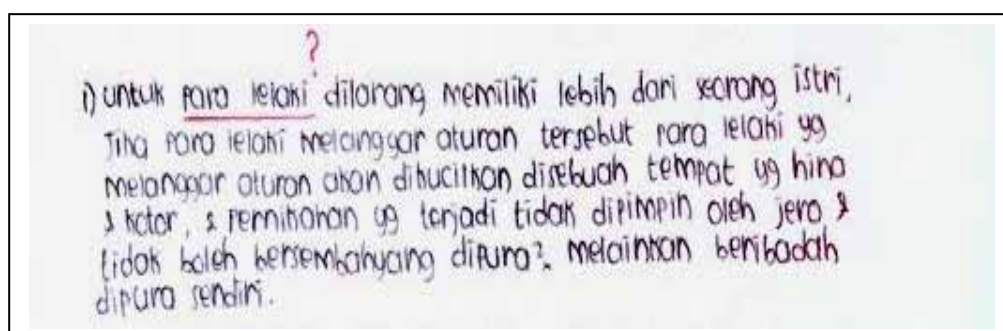 ?
1) untuk para lelaki dilarang memiliki lebih dari seorang istri,
Jika para lelaki melanggar aturan tersebut para lelaki yg
melanggar aturan akan dikucilkan disebuah tempat yg hina
& kotor, & pernikahan yg terjadi tidak dipimpin oleh jero &
tidak boleh bersembahyang dipura², melainkan beribadah
dipura sendiri.